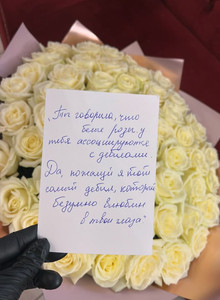 „Ты говорила, что
белые розы у
тебя ассоциируются
с дебилами.
Да, пожалуй я тот
самый дебил, который
безумно влюблён
в твои глаза"